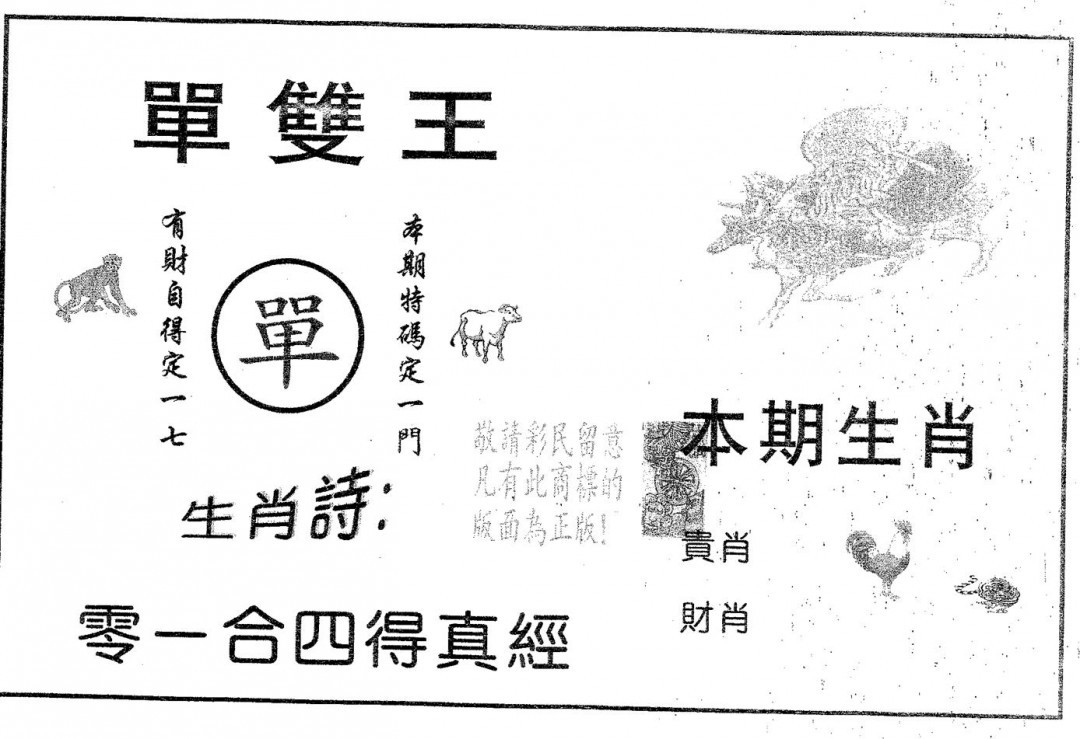 單雙王
本期特碼定一門
單
有財自得定一七
生肖詩:
零一合四得真經
敬請彩民留意
凡有此商標的
版面為正版!
本期生肖
貴肖
財肖